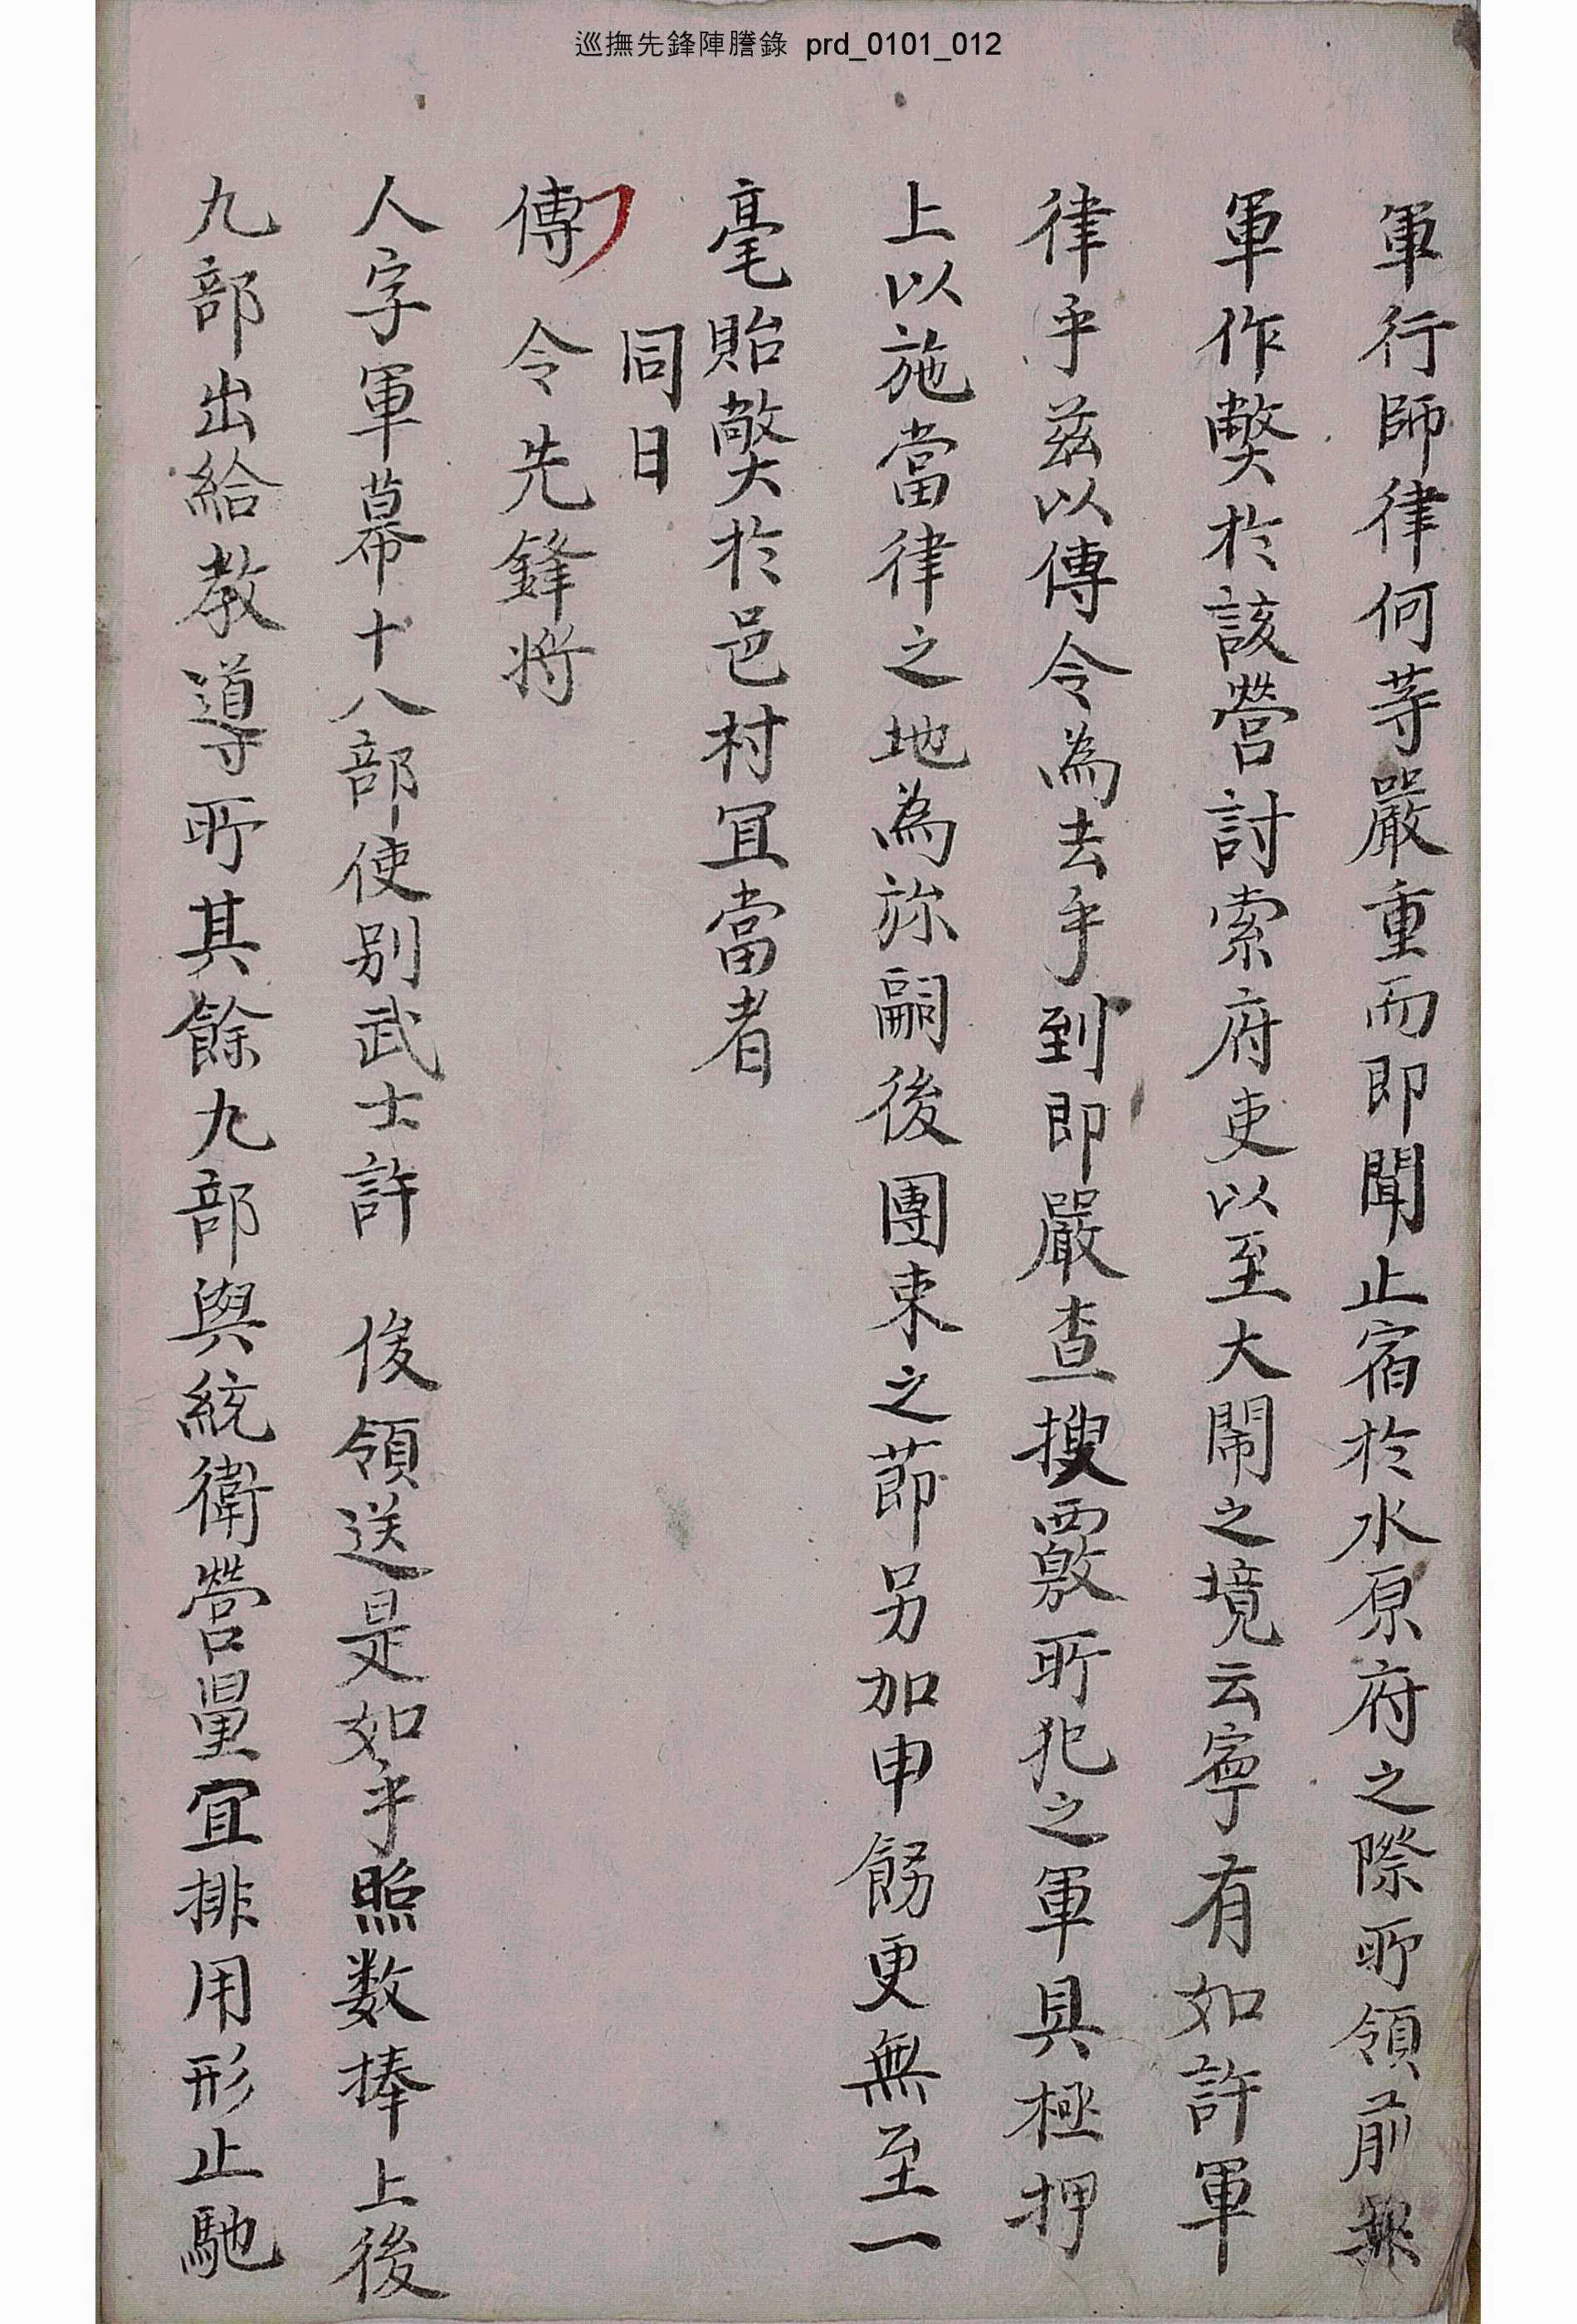 巡撫先鋒陣謄錄 prd_0101_012
軍行師律何等嚴重而即聞止宿於水原府之際所領前
軍作獘於該營討索府吏以至大鬧之境云寧有如許軍
律乎茲以傳令為去乎到即嚴查搜覈所犯之軍具極押
上以施當律之地為旀嗣後團束之節另加申飭更無至一
毫貽獘於邑村冝當者
同日
傳令先鋒將
人字軍幕十八部使別武士許俊領送是如乎照数捧上後
九部出給教導所其餘九部與統衛營量宜排用形止馳